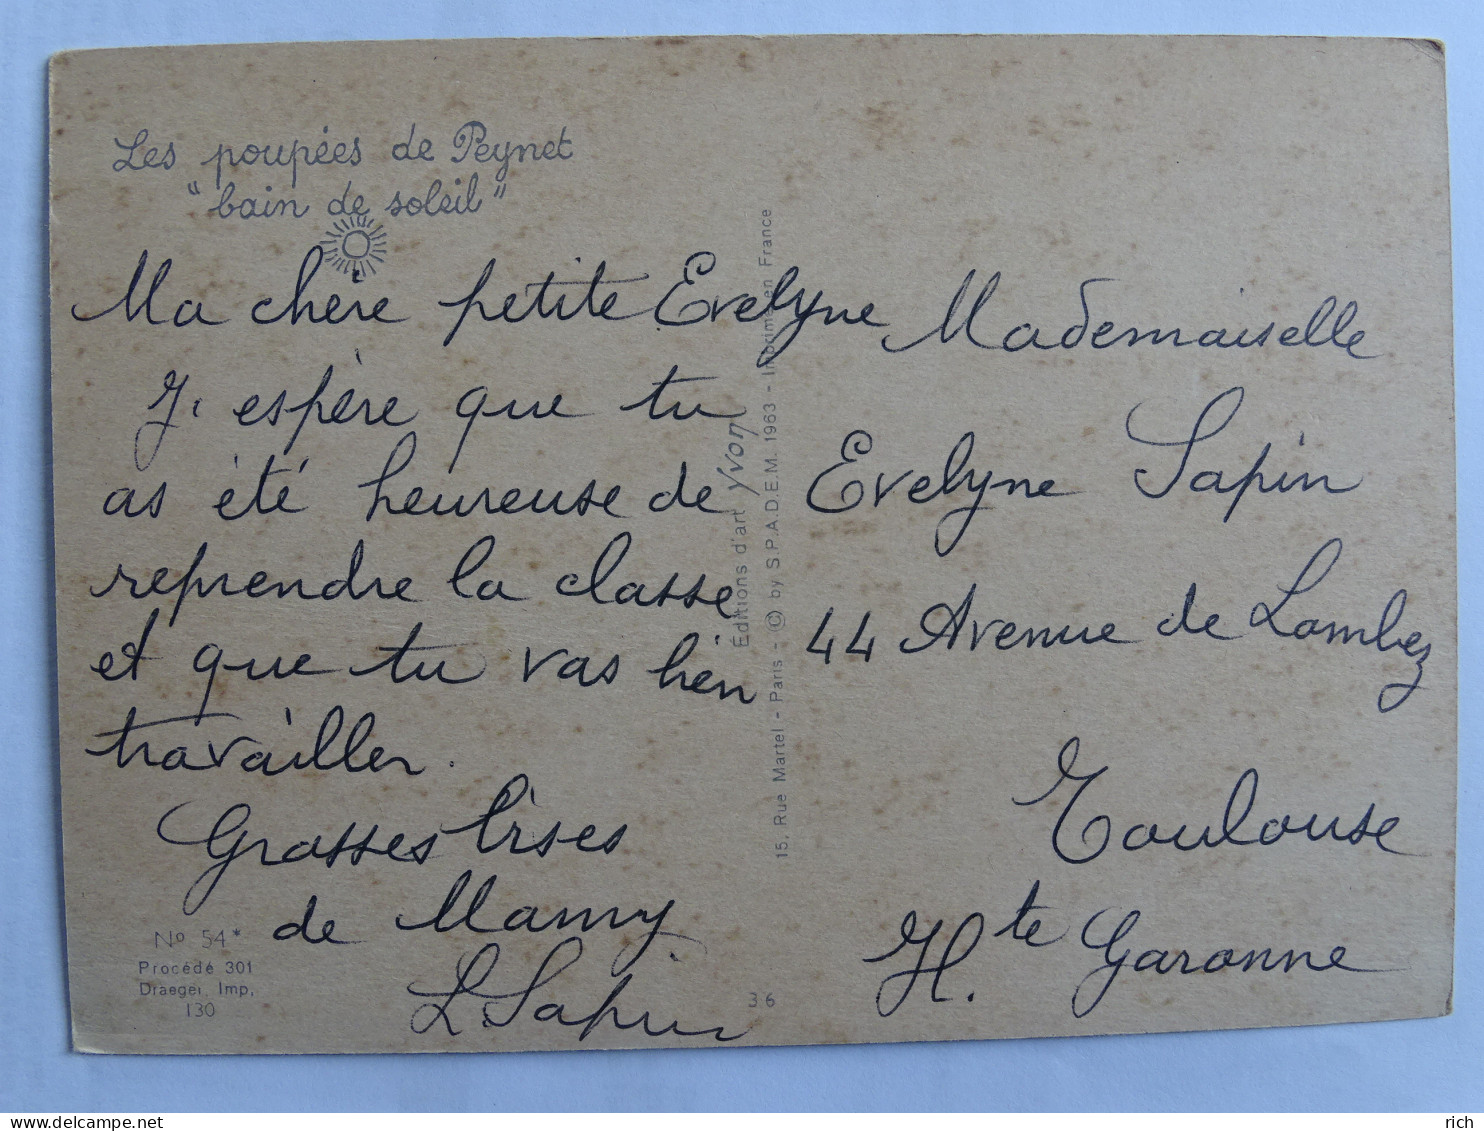 Les poupées de Peynet
"bain de soleil"
Ma chère petite Evelyne
J' espère que tu
as été heureuse de
reprendre la classe
et que tu vas bien
travailler.
Grosses bises
de Mamy
L. Sapin
No 54*
Procédé 301
Draeger, Imp,
130
Éditions d'art Yvon
15, Rue Martel - Paris - © by S.P.A.D.E.M. 1963 - Imprimé en France
36
Mademoiselle
Evelyne Sapin
44 Avenue de Lombez
Toulouse
Hte Garonne
rich